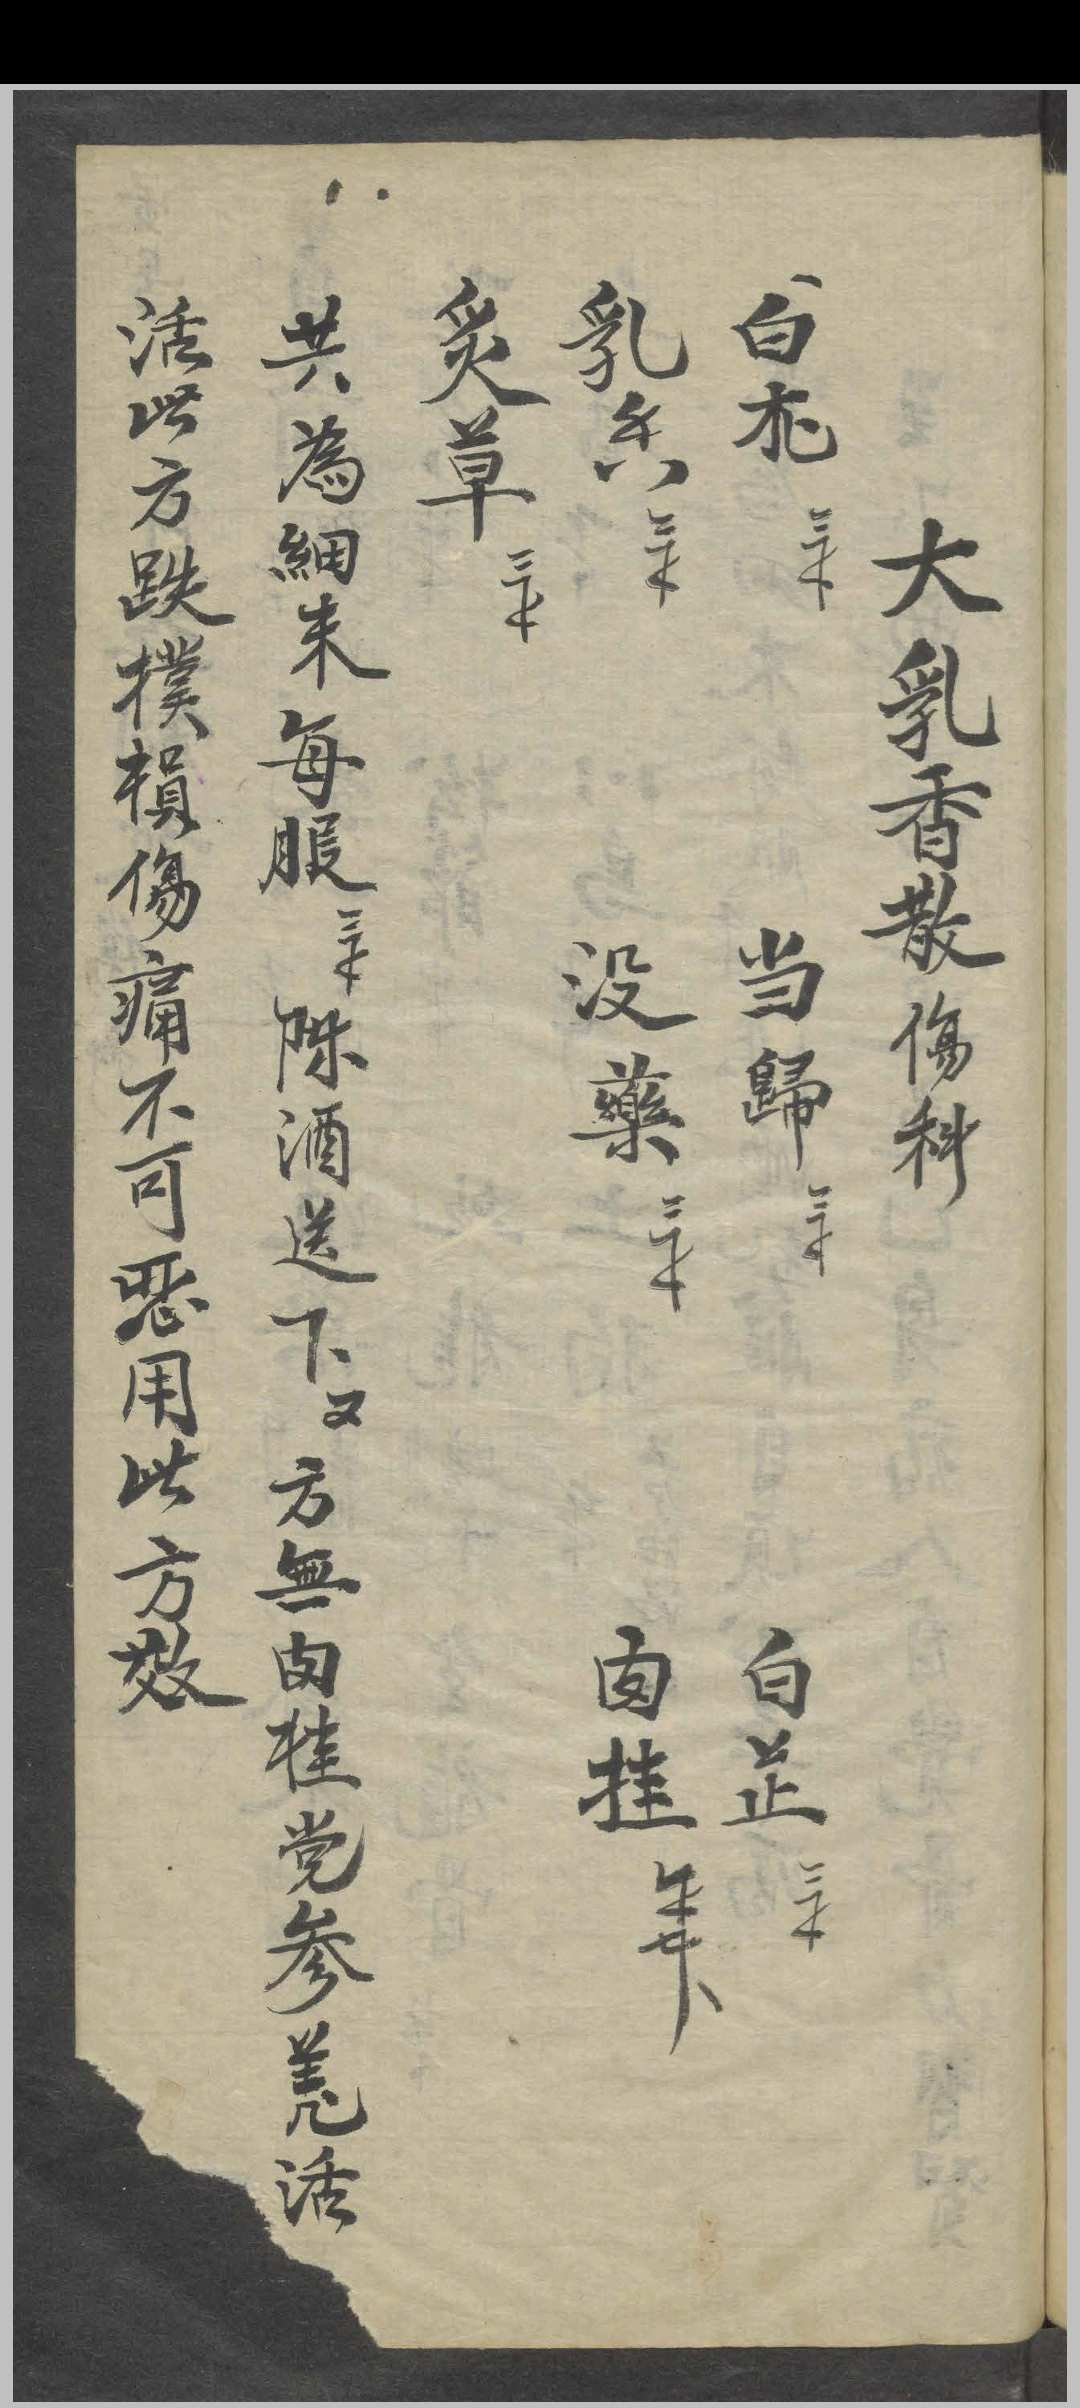 大乳香散傷科
白朮三錢 当歸三錢 白芷三錢
乳香三錢 没藥三錢 肉桂
炙草三錢
共為細末每服三錢陳酒送下又方無肉桂党参羌活
活此方跌撲損傷痛不可忍用此方效